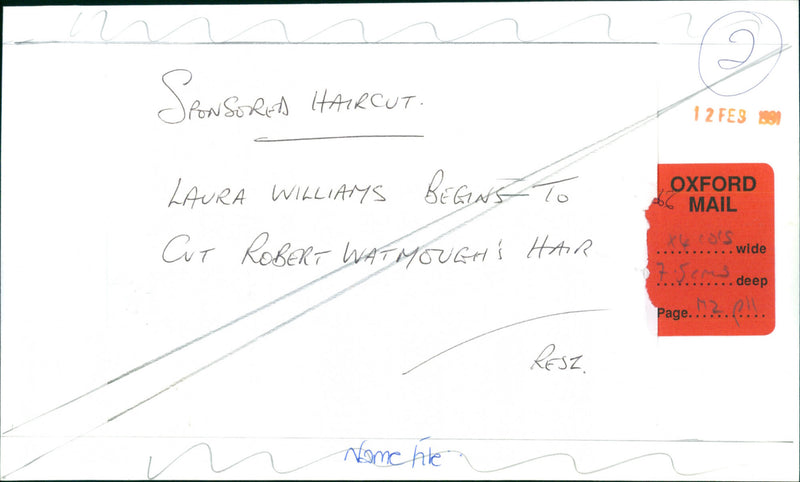 2
12 FEB 1991
SPONSORED HAIRCUT.
LAURA WILLIAMS BEGINS TO
CUT ROBERT WATMOUGH'S HAIR
RESZ.
OXFORD
MAIL
x4 cols wide
7.5cms deep
Page M2 p11
Name file